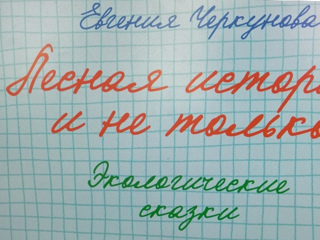 Евгения Черкунова
Лесная истори
и не только
Экологические
сказки